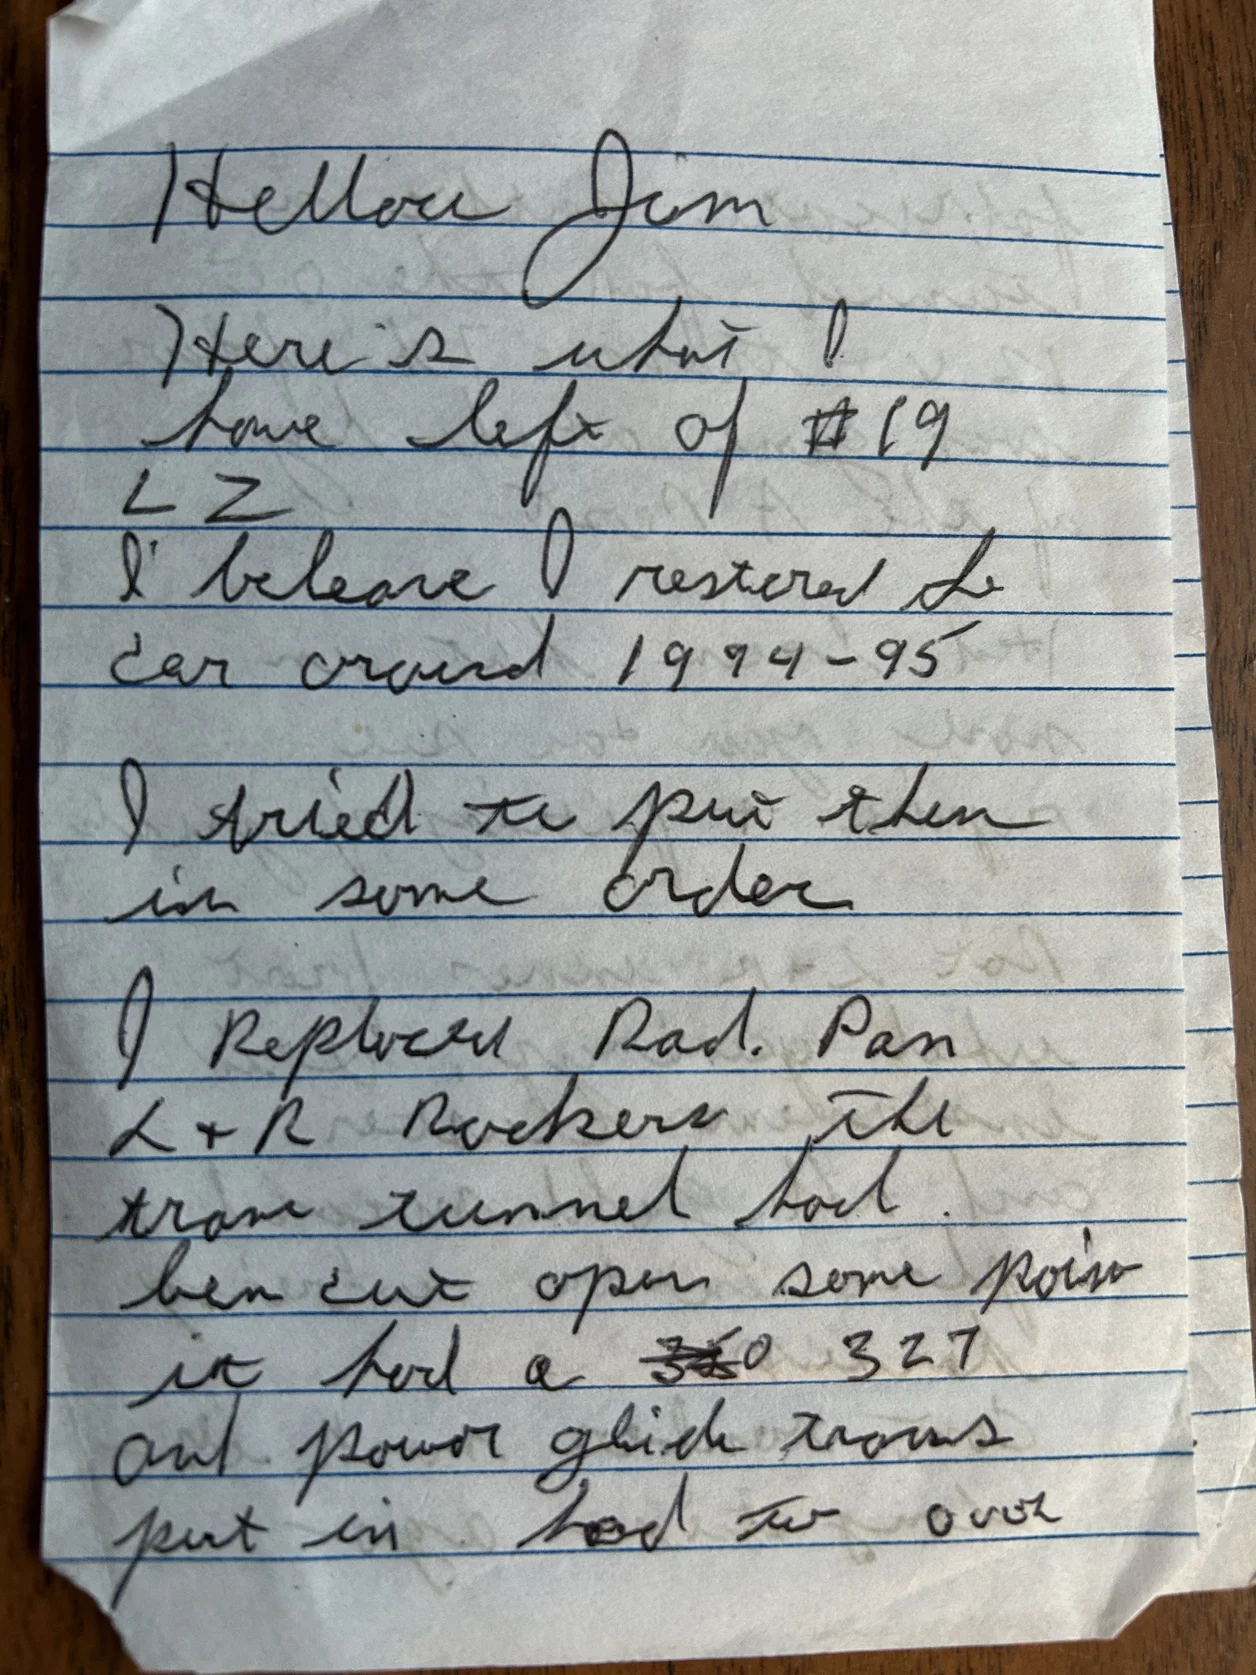 Hellow Jim
Here's what I
have left of #19
LZ
I beleave I restered the
car around 1994-95
I tried to put them
in some order
I Replaced Rad. Pan
L + R Rockers the
trans tunnel had
ben cut open some poin
it had a 327
and power glide trans
put in had to over